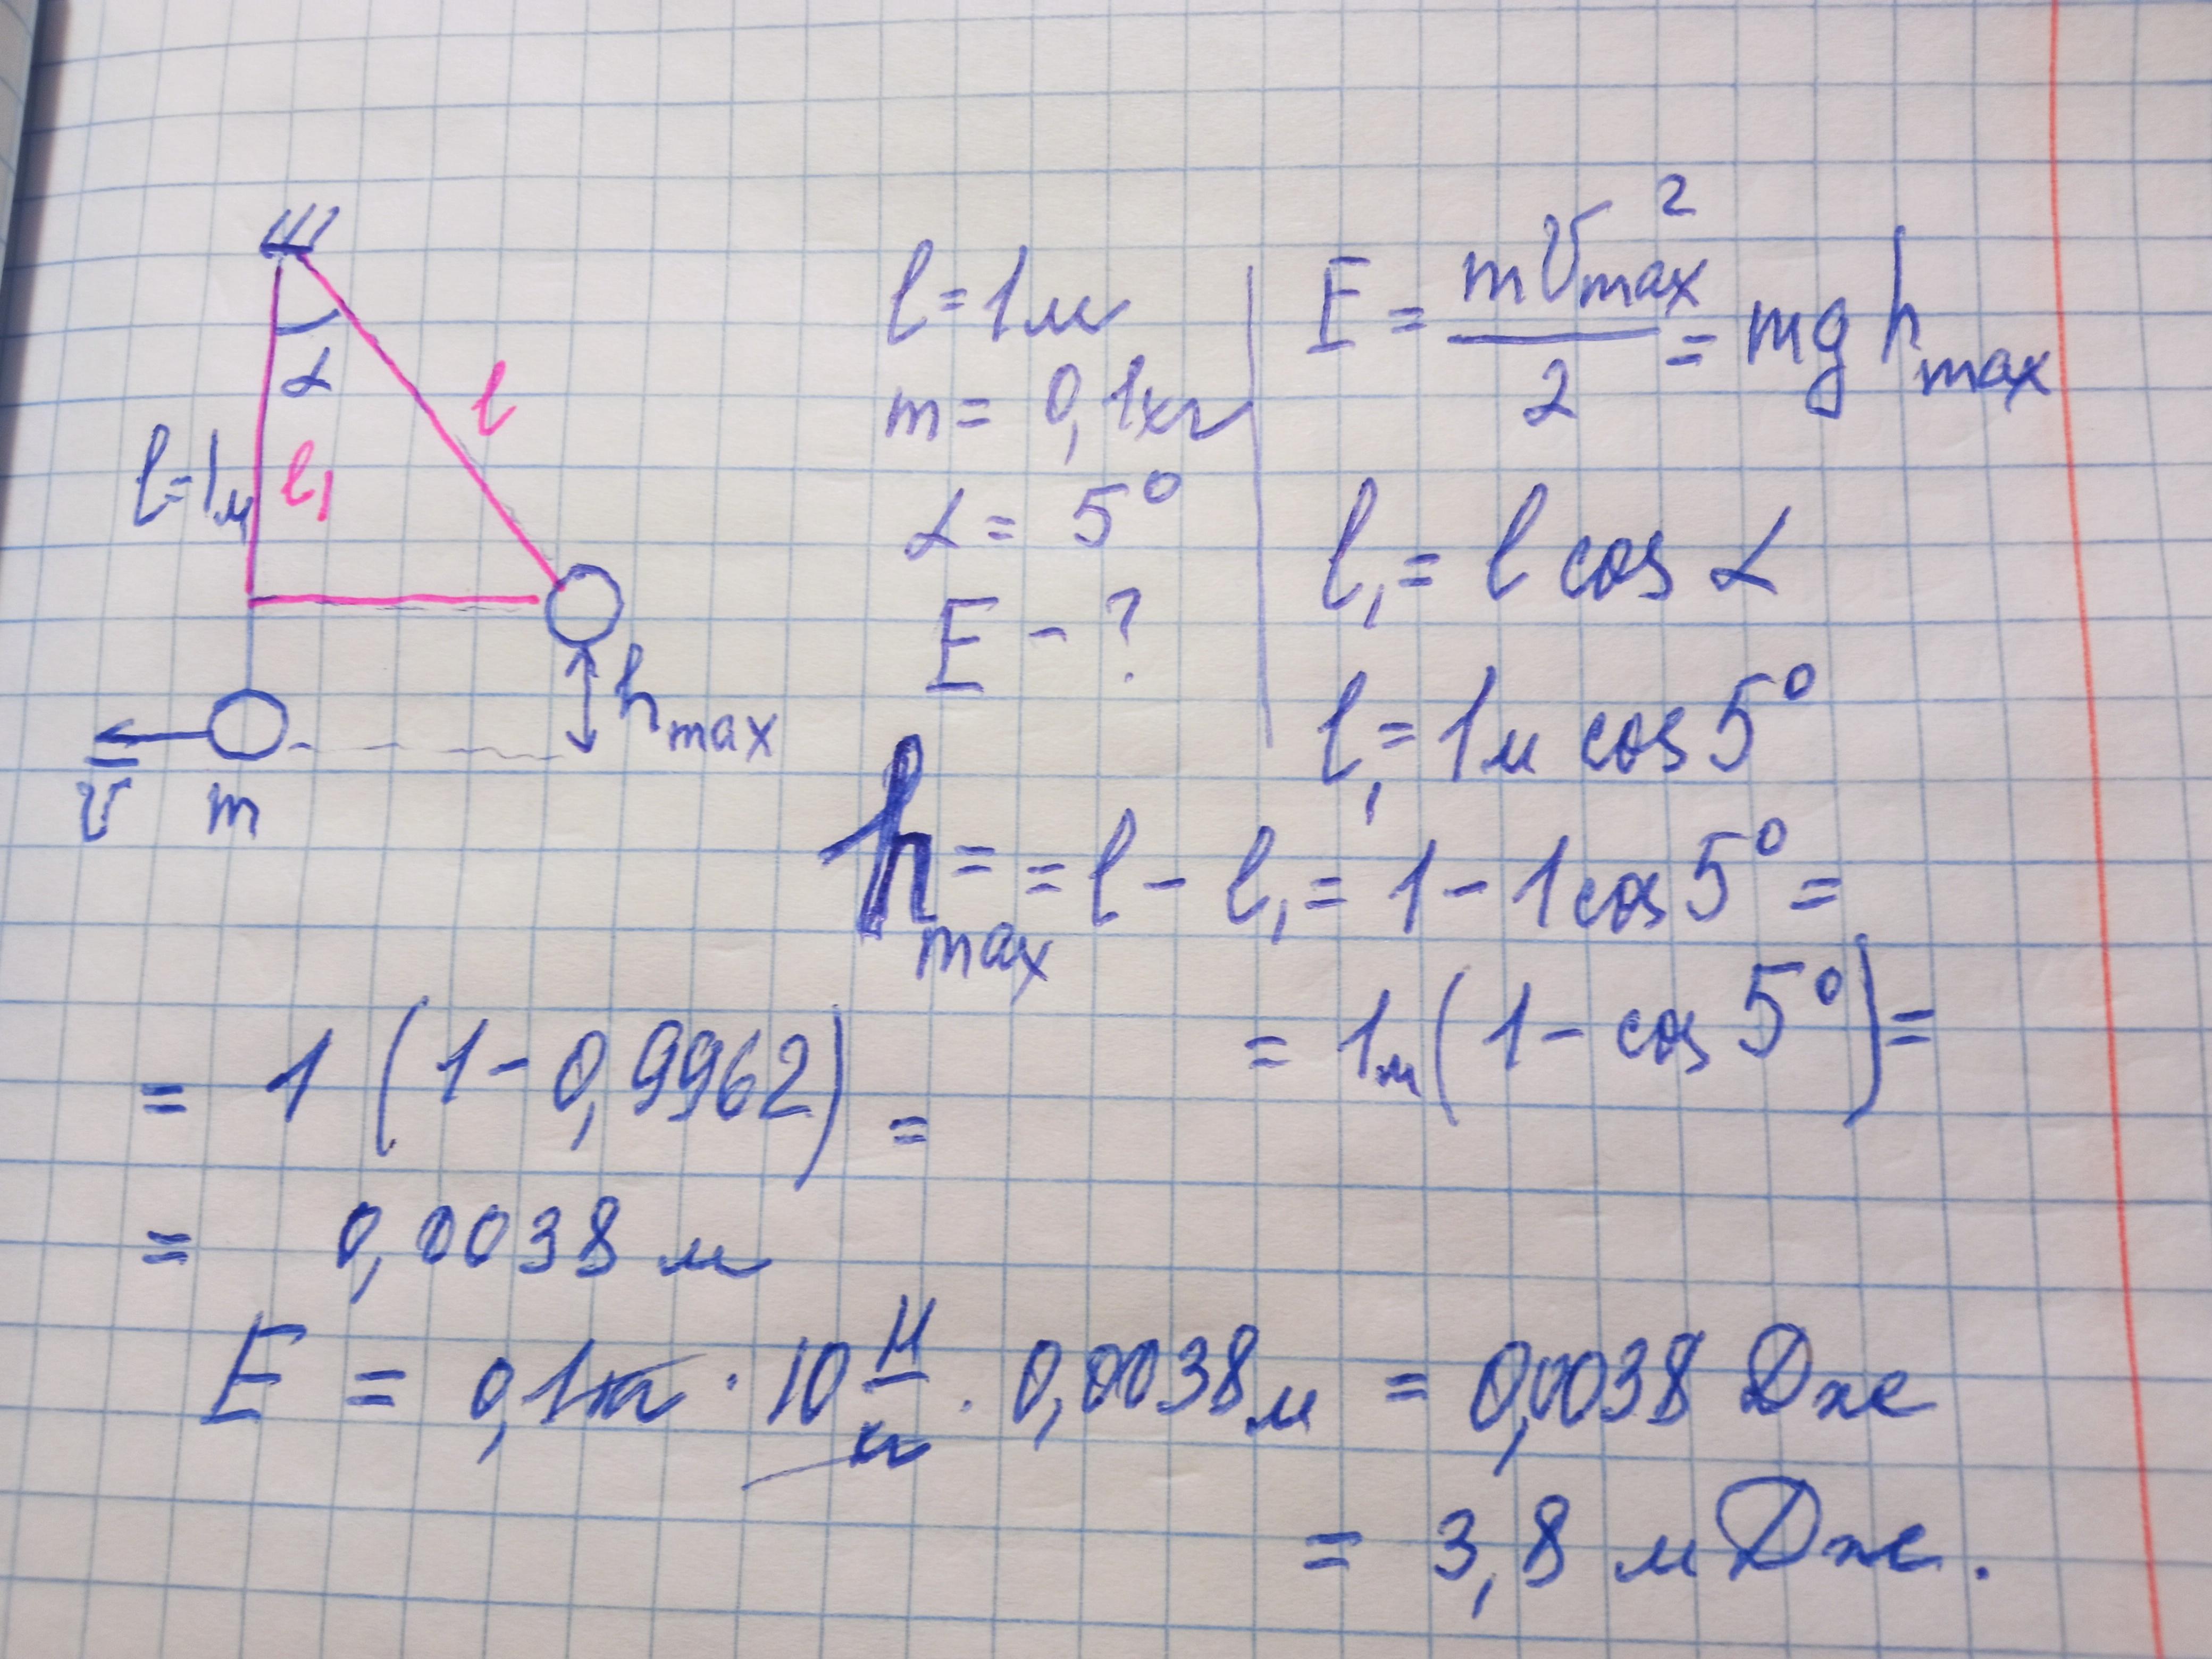 α
l
l=1м
l₁
h max
v
m
l = 1м
m = 0,1кг
α = 5°
E - ?
E = mv²max / 2 = mg h max
l₁ = l cos α
l₁ = 1м cos 5°
h max = = l - l₁ = 1 - 1 cos 5° =
= 1м (1 - cos 5°) =
= 1 (1 - 0,9962) =
= 0,0038 м
E = 0,1кг · 10 Н/кг · 0,0038 м = 0,0038 Дж
= 3,8 мДж.